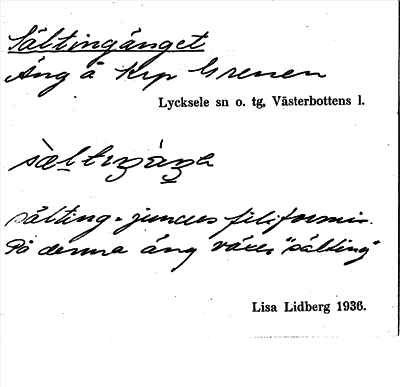 Sältingänget
Äng å krp Grenen
Lycksele sn o. tg, Västerbottens l.
sälting = juncus filiformis.
På denna äng växer "sälting"
Lisa Lidberg 1936.